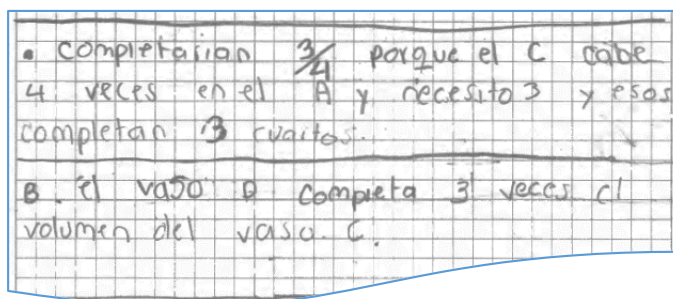 • completarian 3/4 porque el C cabe
4 veces en el A y necesito 3 y esos
completan 3 cuartos.
B. el vaso D completa 3 veces el
volumen del vaso C.